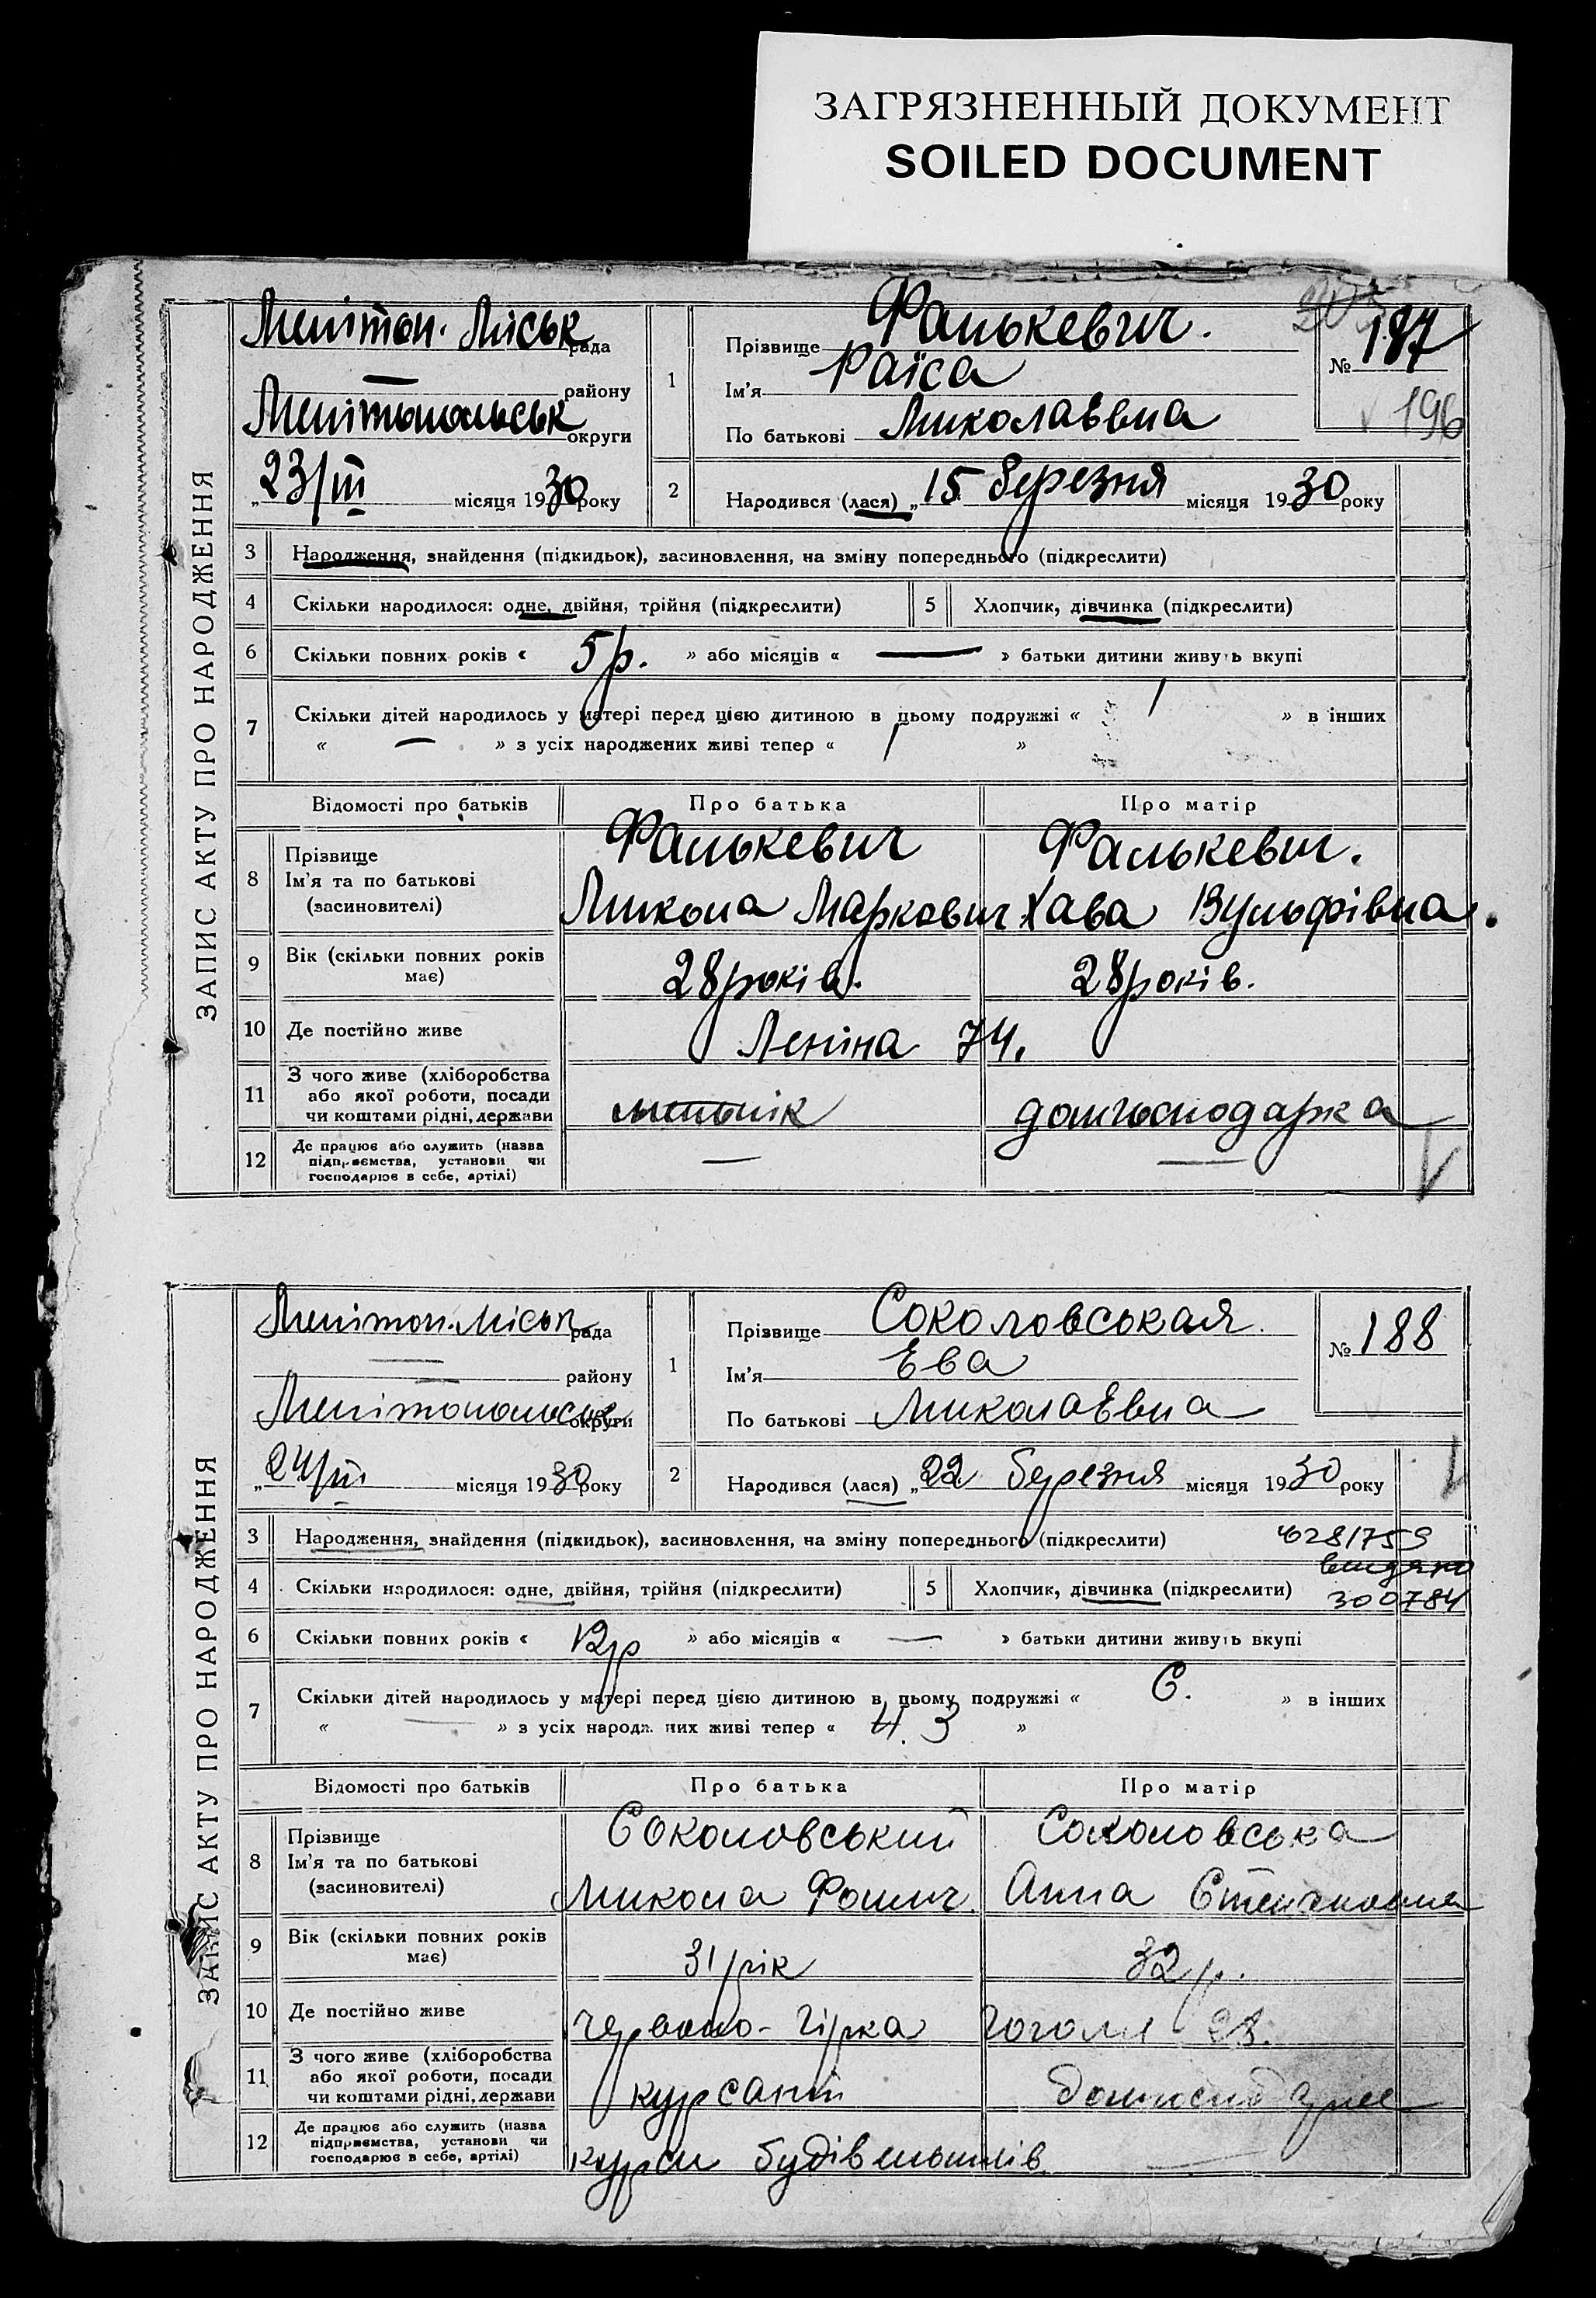 ЗАГРЯЗНЕННЫЙ ДОКУМЕНТ
SOILED DOCUMENT
ЗАПИС АКТУ ПРО НАРОДЖЕННЯ
Мелітоп. Міськ рада
— району
Мелітопольськ округи
„23/III місяця 1930 року
1 Прізвище Фалькевич.
Ім'я Раїса
По батькові Миколаєвна
№ 187
196
2 Народився (лася) „15 березня місяця 1930 року
3 Народження, знайдення (підкидьок), засиновлення, на зміну попереднього (підкреслити)
4 Скільки народилося: одне, двійня, трійня (підкреслити) 5 Хлопчик, дівчинка (підкреслити)
6 Скільки повних років « 5 р. » або місяців « — » батьки дитини живуть вкупі
7 Скільки дітей народилось у матері перед цією дитиною в цьому подружжі « 1 » в інших
« — » з усіх народжених живі тепер « 1 »
Відомості про батьків Про батька Про матір
8 Прізвище Ім'я та по батькові (засновителі)
Фалькевич Фалькевич.
Микола Маркович Хава Вульфівна.
9 Вік (скільки повних років має) 28 років. 28 років.
10 Де постійно живе Леніна 74.
11 З чого живе (хліборобства або якої роботи, посади чи коштами рідні, держави мельнік домгосподарка
12 Де працює або служить (назва підприємства, установи чи господарює в себе, артілі) — —
ЗАПИС АКТУ ПРО НАРОДЖЕННЯ
Мелітоп. Міськ рада
— району
Мелітопольськ округи
„24/III місяця 1930 року
1 Прізвище Соколовськая.
Ім'я Ева
По батькові Миколаєвна
№ 188
2 Народився (лася) „22 березня місяця 1930 року
3 Народження, знайдення (підкидьок), засиновлення, на зміну попереднього (підкреслити)
4 Скільки народилося: одне, двійня, трійня (підкреслити) 5 Хлопчик, дівчинка (підкреслити)
видано
300784
6 Скільки повних років « 12 р » або місяців « — » батьки дитини живуть вкупі
7 Скільки дітей народилось у матері перед цією дитиною в цьому подружжі « 6. » в інших
« — » з усіх народжених живі тепер « 4. 3 »
Відомості про батьків Про батька Про матір
8 Прізвище Ім'я та по батькові (засиновителі)
Соколовський Соколовська
Микола Фомич. Анна Степановна
9 Вік (скільки повних років має) 31 рік 32 р.
10 Де постійно живе Червоно-Гірка Гоголя 28.
11 З чого живе (хліборобства або якої роботи, посади чи коштами рідні, держави курсант
12 Де працює або служить (назва підприємства, установи чи господарює в себе, артілі) курси будівельників. —